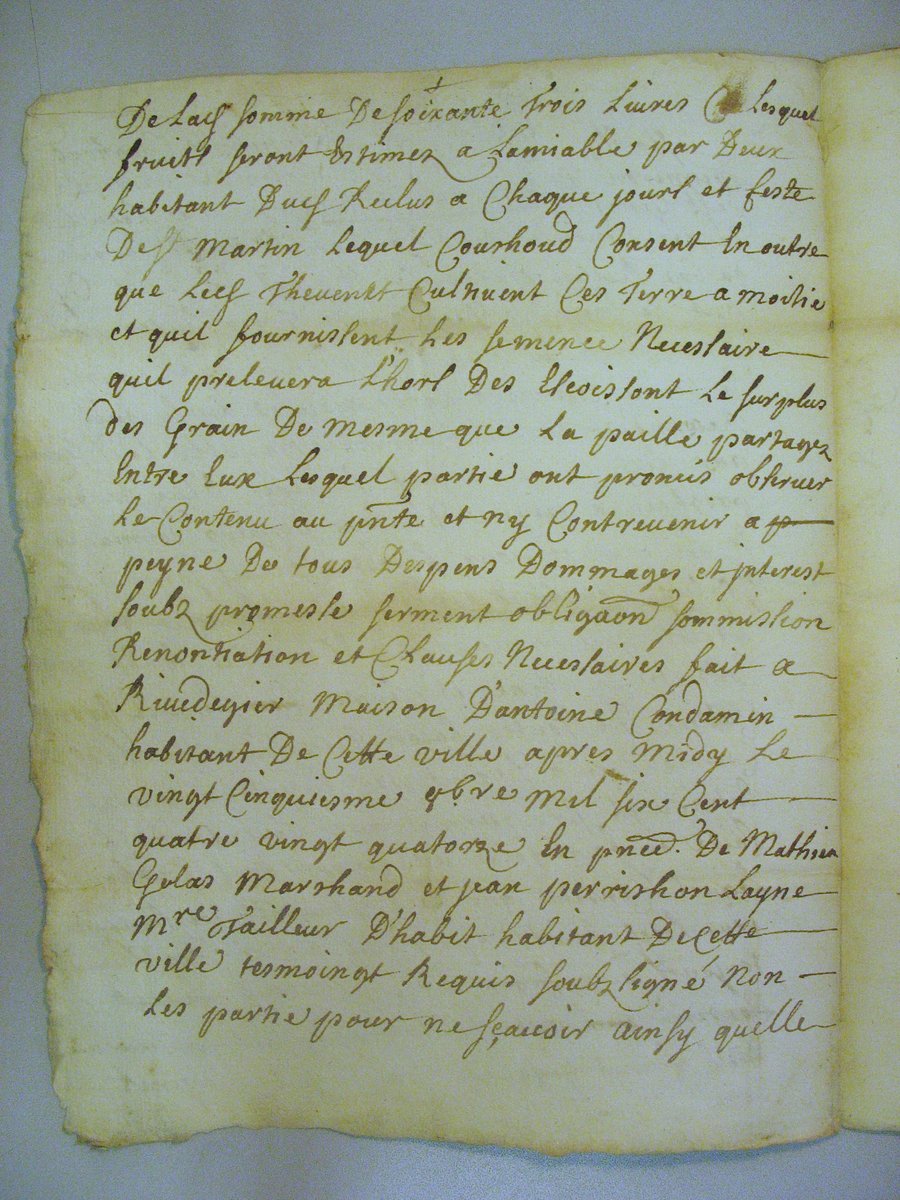 De lad somme De soixante Trois Livres Lesquel
fruits seront Estimez a Lamiable par Deux
habitant Dud Reclus a Chaque jours et feste
De st Martin Lequel Courhoud Consent En outre
que Lesd Thevenet Cultivent Ces Terre a moitie
et quil fournissent Les semence Necessaire
quil prelevera Lhors Des Le surplus
des Grain De mesme que La paille partagez
Entre Eux Lesquel partie ont promis observer
Le Contenu au pnte et ny Contrevenir a
peyne De tous Despens Dommages et jnterest
soubz promesse serment obligaon sommission
Renontiation et Clauses Necessaires fait a
Rivedegier Maison D'antoine Condamin
habitant De Cette ville apres Midy Le
vingt Cinquiesme Mil six Cent
quatre vingt quatorze En pnce. De Mathieu
Gelas Marshand et jean perrishon Layne
Mre Tailleur D'habit habitant De Cette
ville tesmoingt Requis soubz signé Non
Les partie pour ne sçavoir ainsy quelle